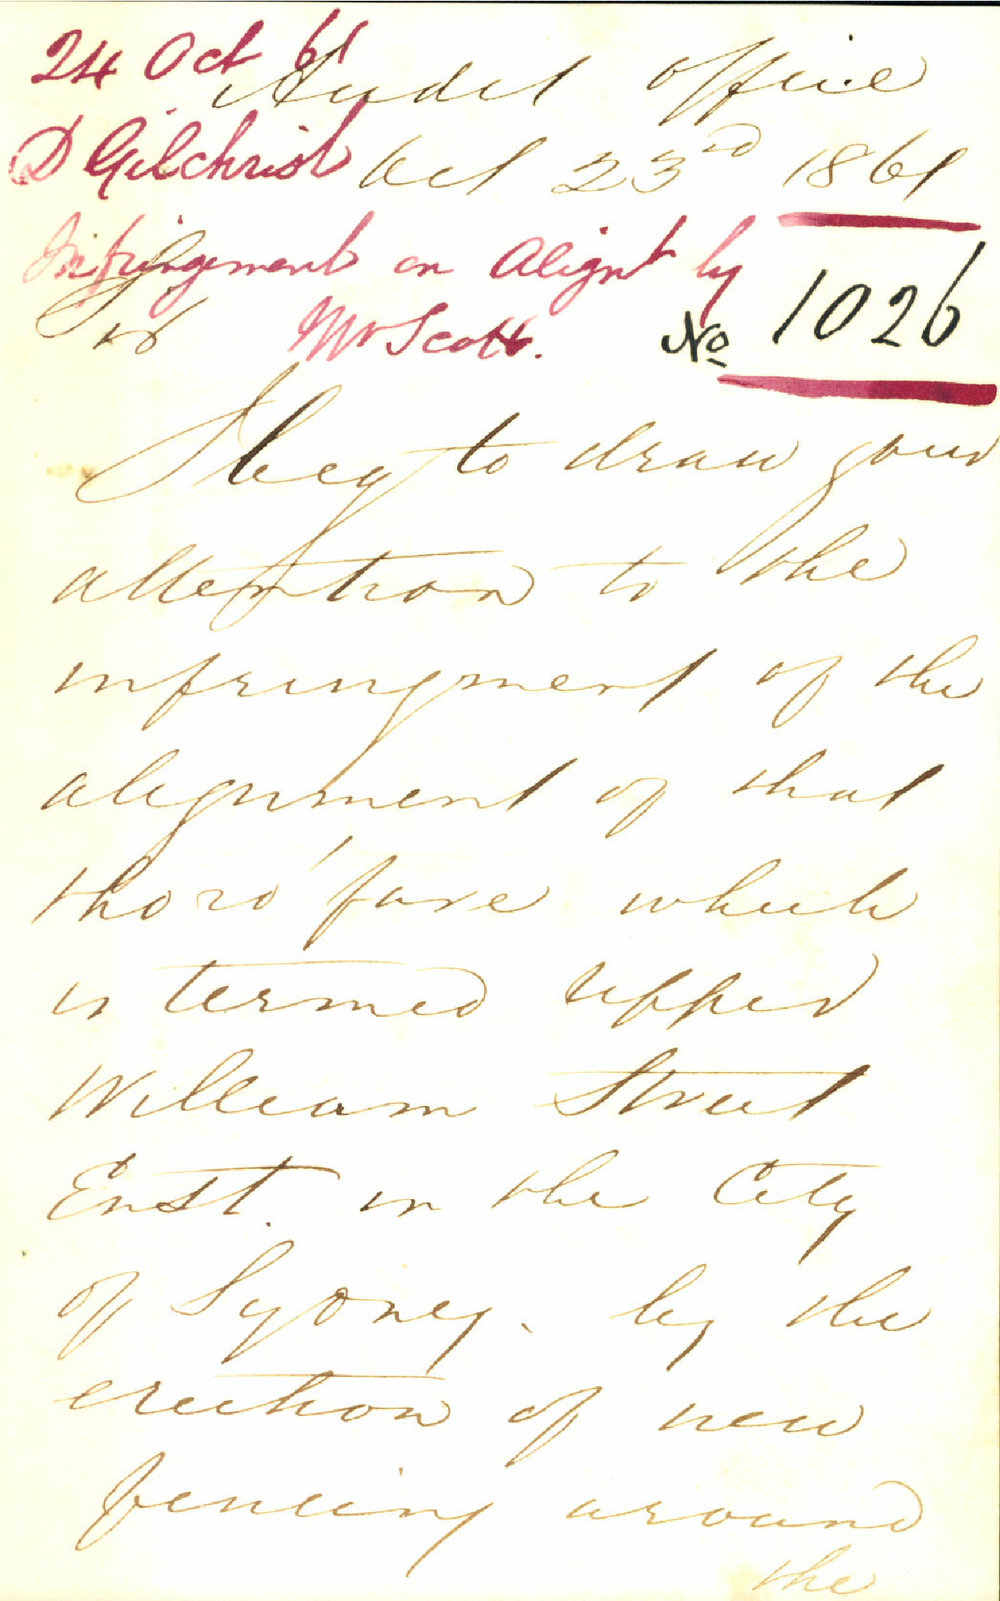 24 Oct 61
Audit office
D Gilchrist
Oct 23rd 1861
Infringement on Alignt by
Mr Scott.
No 1026
Sir
I beg to draw your
attention to the
infringment of the
alignment of that
thoro'fare which
is termed Upper
William Street
East. in the City
of Sydney. by the
erection of new
fencing around
the